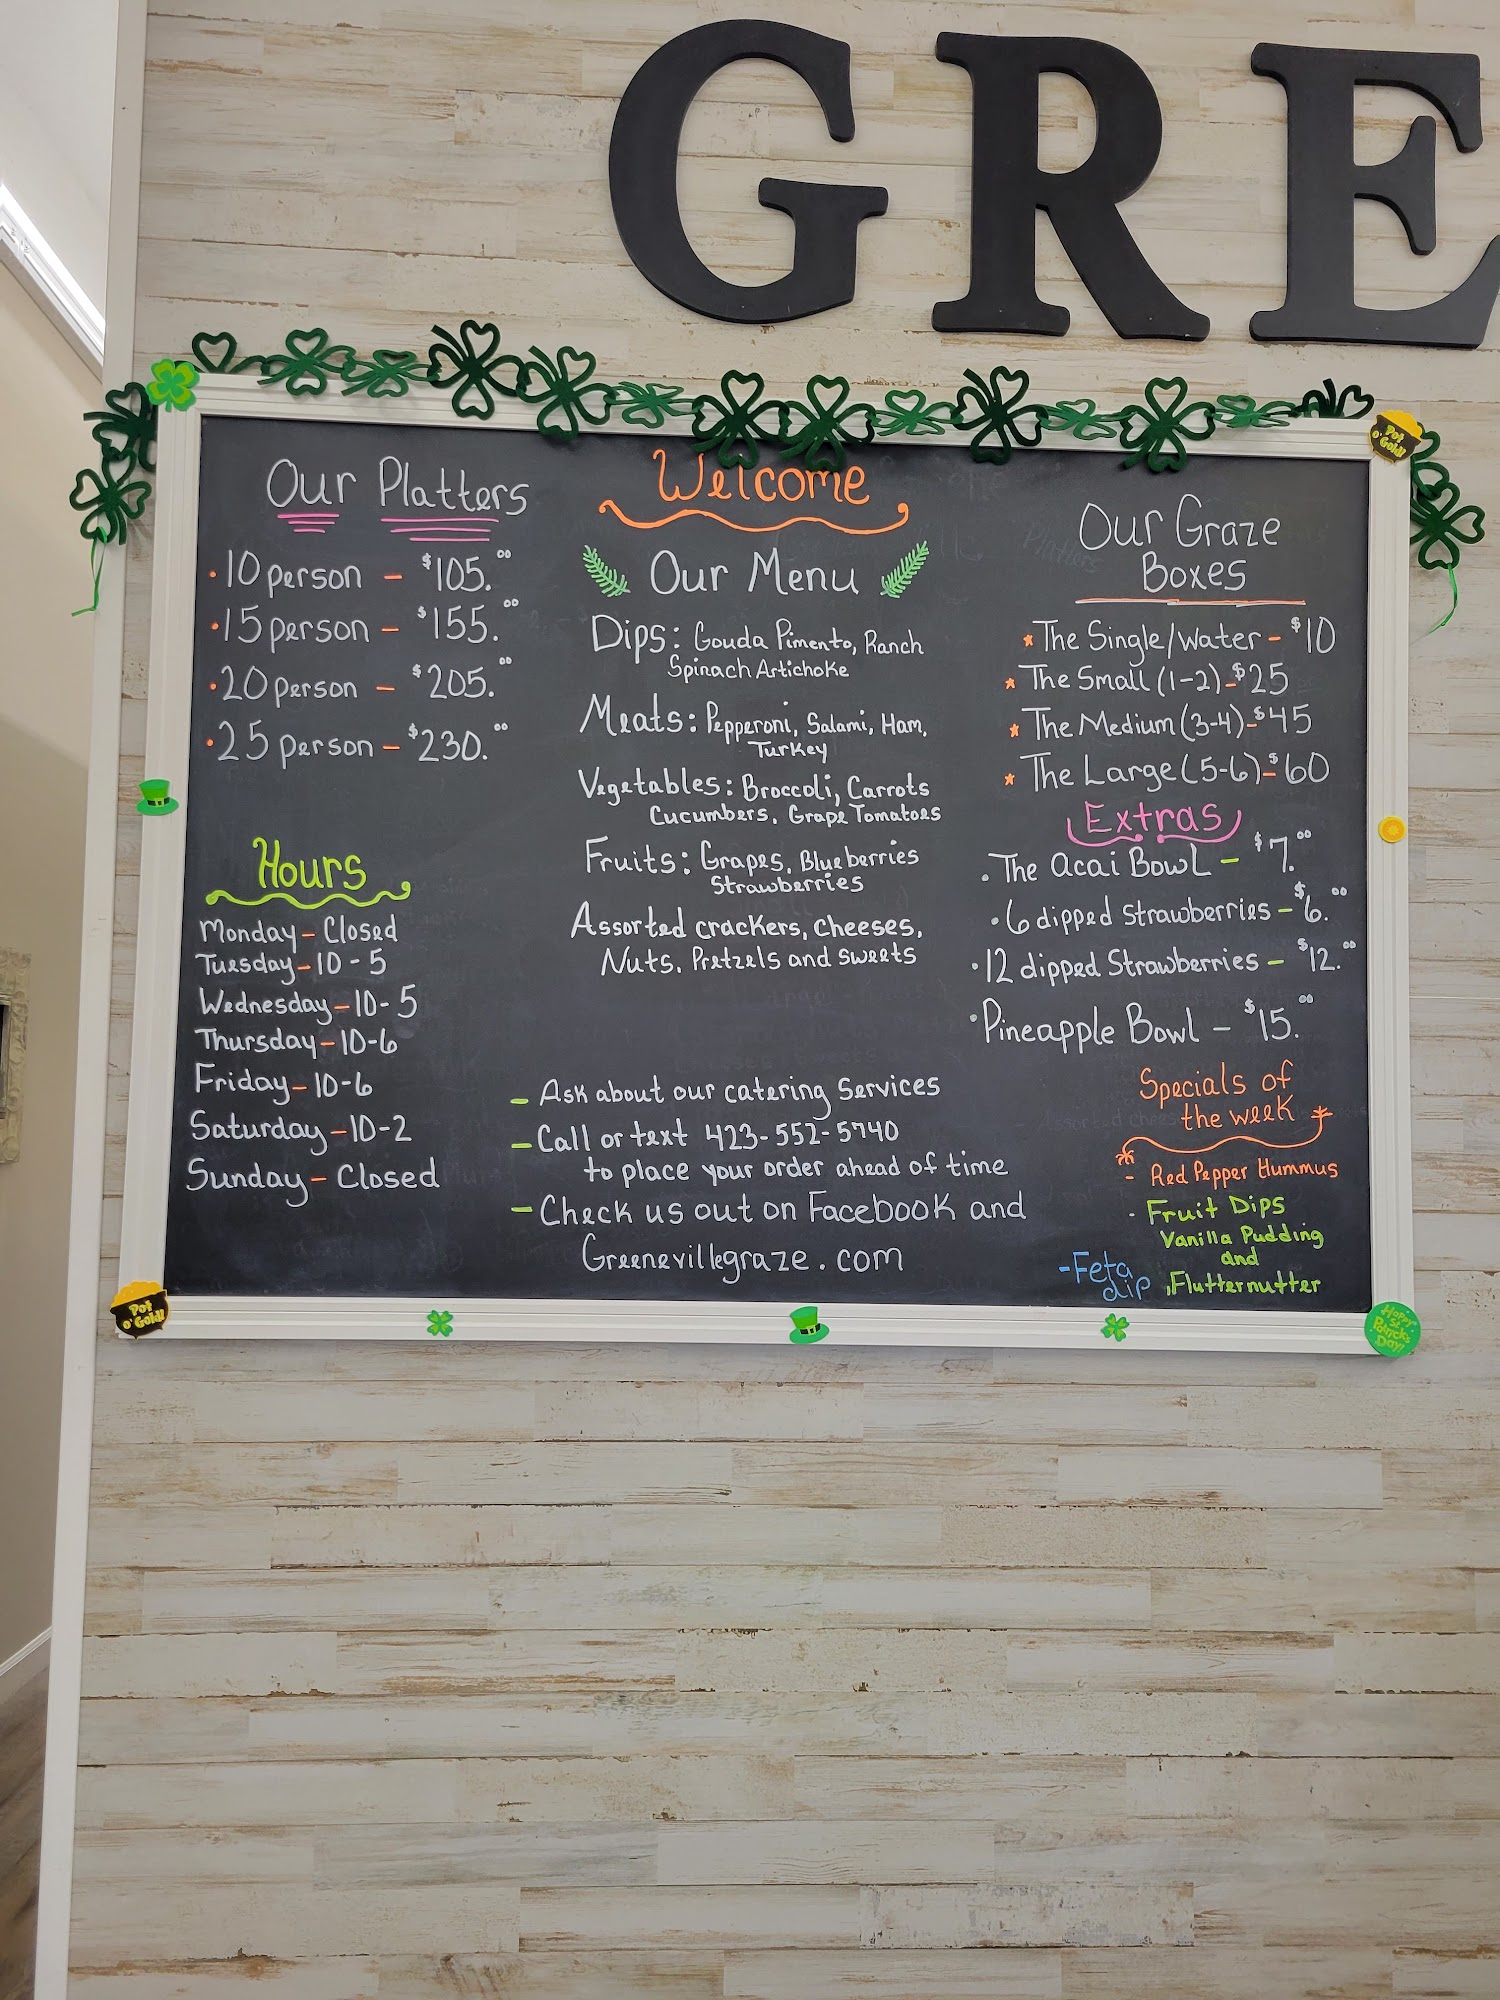 GRE
Our Platters
• 10 person - $105.00
• 15 person - $155.00
• 20 person - $205.00
• 25 person - $230.00
Hours
Monday - Closed
Tuesday - 10 - 5
Wednesday - 10 - 5
Thursday - 10-6
Friday - 10-6
Saturday - 10-2
Sunday - Closed
Welcome
Our Menu
Dips: Gouda Pimento, Ranch
Spinach Artichoke
Meats: Pepperoni, Salami, Ham,
Turkey
Vegetables: Broccoli, Carrots
Cucumbers, Grape Tomatoes
Fruits: Grapes, Blueberries
Strawberries
Assorted crackers, cheeses,
Nuts, Pretzels and sweets
- Ask about our catering services
- Call or text 423-552-5740
to place your order ahead of time
- Check us out on Facebook and
Greenevillegraze.com
Our Graze
Boxes
* The Single/water - $10
* The Small (1-2) - $25
* The Medium (3-4) - $45
* The Large (5-6) - $60
Extras
• The Acai Bowl - $7.00
• 6 dipped strawberries - $6.00
• 12 dipped Strawberries - $12.00
• Pineapple Bowl - $15.00
Specials of
the week
- Red Pepper Hummus
- Fruit Dips
Vanilla Pudding
and
, Flutternutter
- Feta
dip
Pot
o' Gold!
Pot
o' Gold!
Happy
St.
Patrick's
Day!